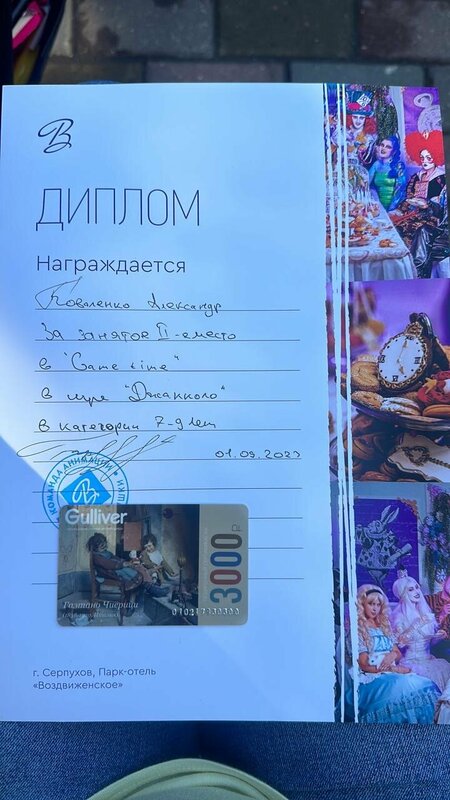 В
ДИПЛОМ
Награждается
Коваленко Александр
За занятое II-место
в "Game time"
в игре "Джакколо"
в категории 7-9 лет
01.09.2023
КОМАНДА АНИМАЦИИ
Gulliver
3000
Гаэтано Чиеричи
г. Серпухов, Парк-отель
«Воздвиженское»